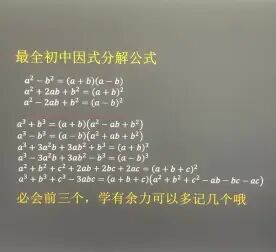 最全初中因式分解公式
a² − b² = (a + b)(a − b)
a² + 2ab + b² = (a + b)²
a² − 2ab + b² = (a − b)²
a³ + b³ = (a + b)(a² − ab + b²)
a³ − b³ = (a − b)(a² + ab + b²)
a³ + 3a²b + 3ab² + b³ = (a + b)³
a³ − 3a²b + 3ab² − b³ = (a − b)³
a² + b² + c² + 2ab + 2bc + 2ac = (a + b + c)²
a³ + b³ + c³ − 3abc = (a + b + c)(a² + b² + c² − ab − bc − ac)
必会前三个，学有余力可以多记几个哦